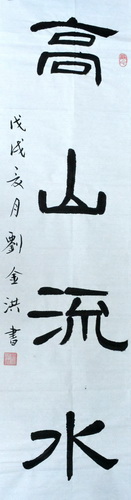 高山流水
戊戌夏月劉金洪書